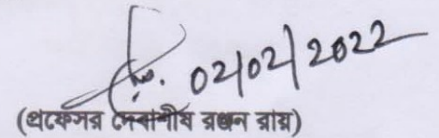 02/02/2022
(প্রফেসর দেবাশীষ রঞ্জন রায়)